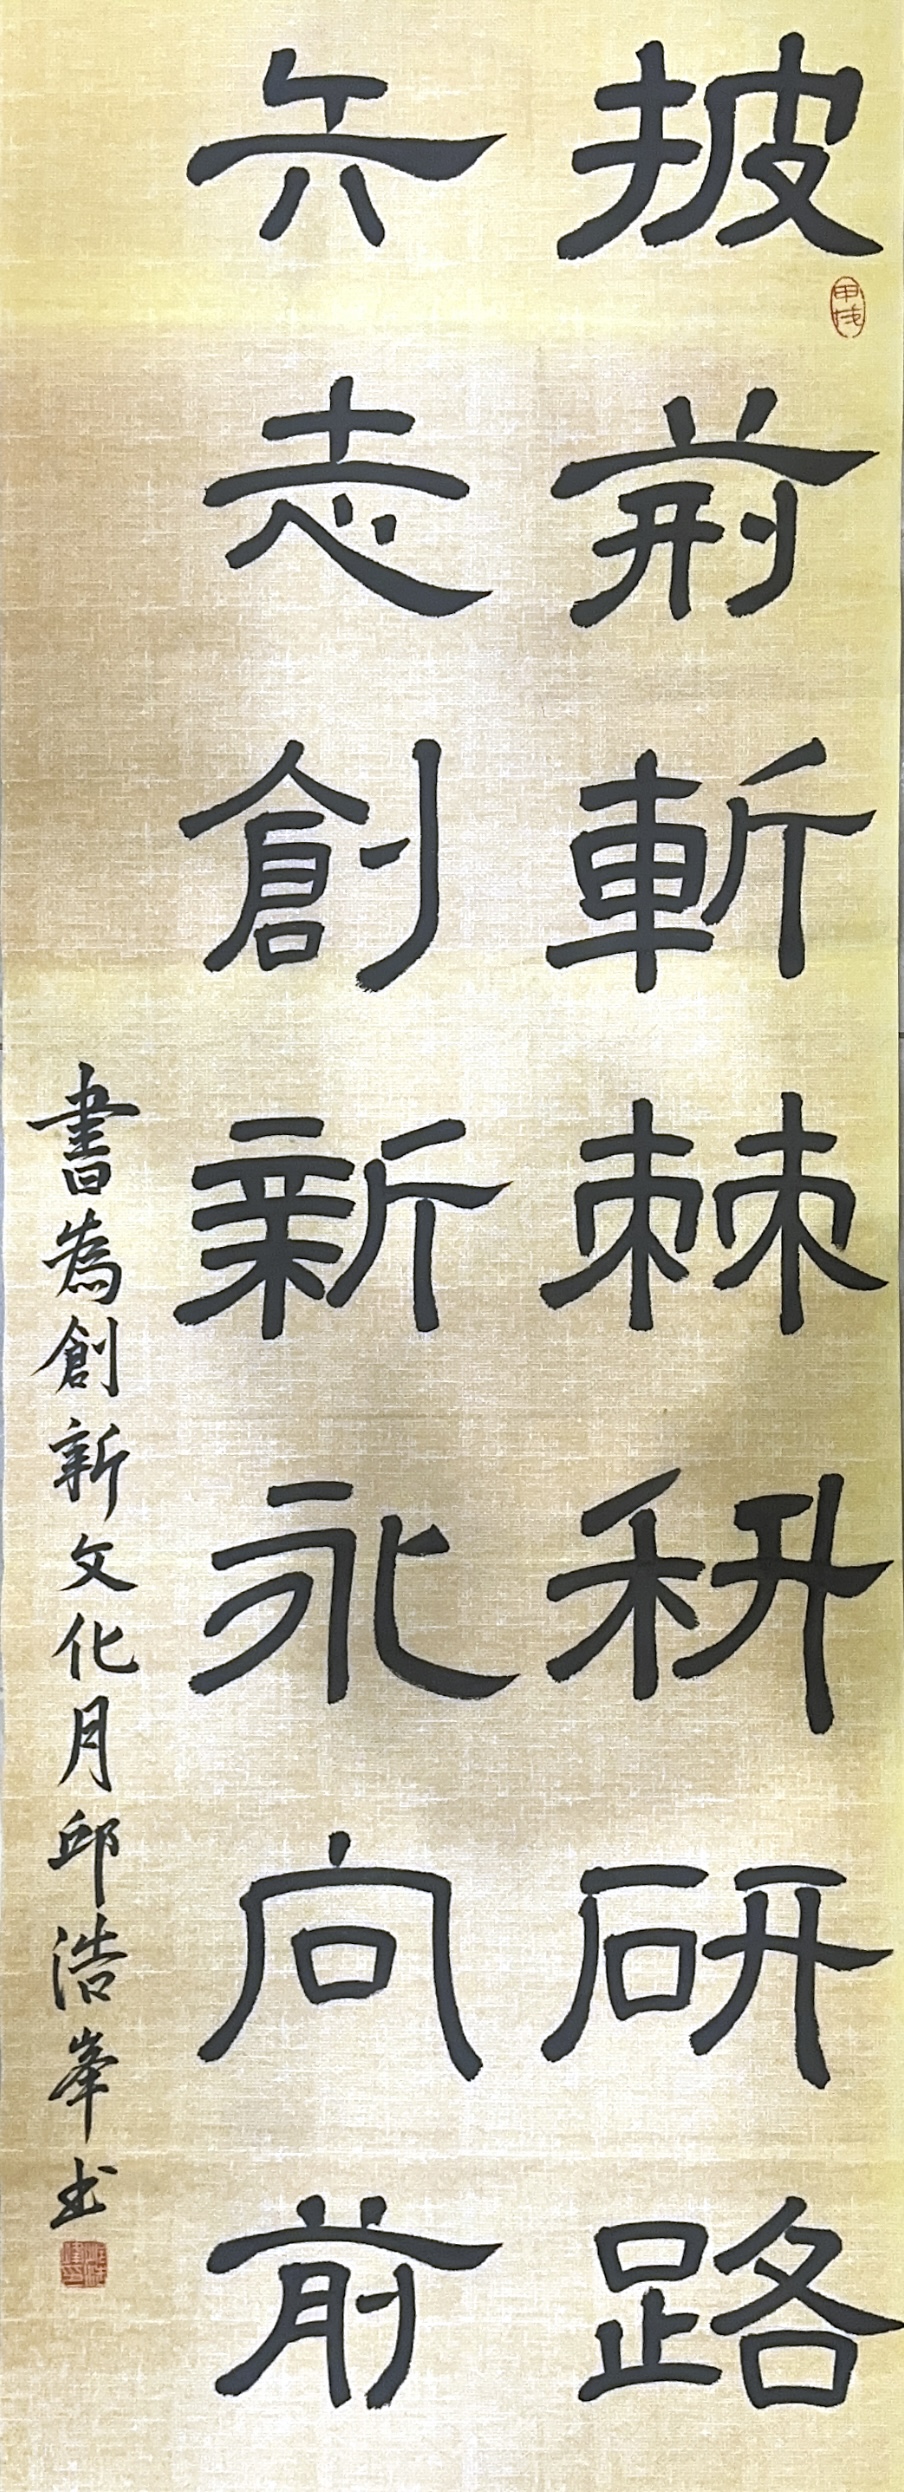 披荊斬棘科研路
矢志創新永向前
書為創新文化月邱浩峯书
甲戌